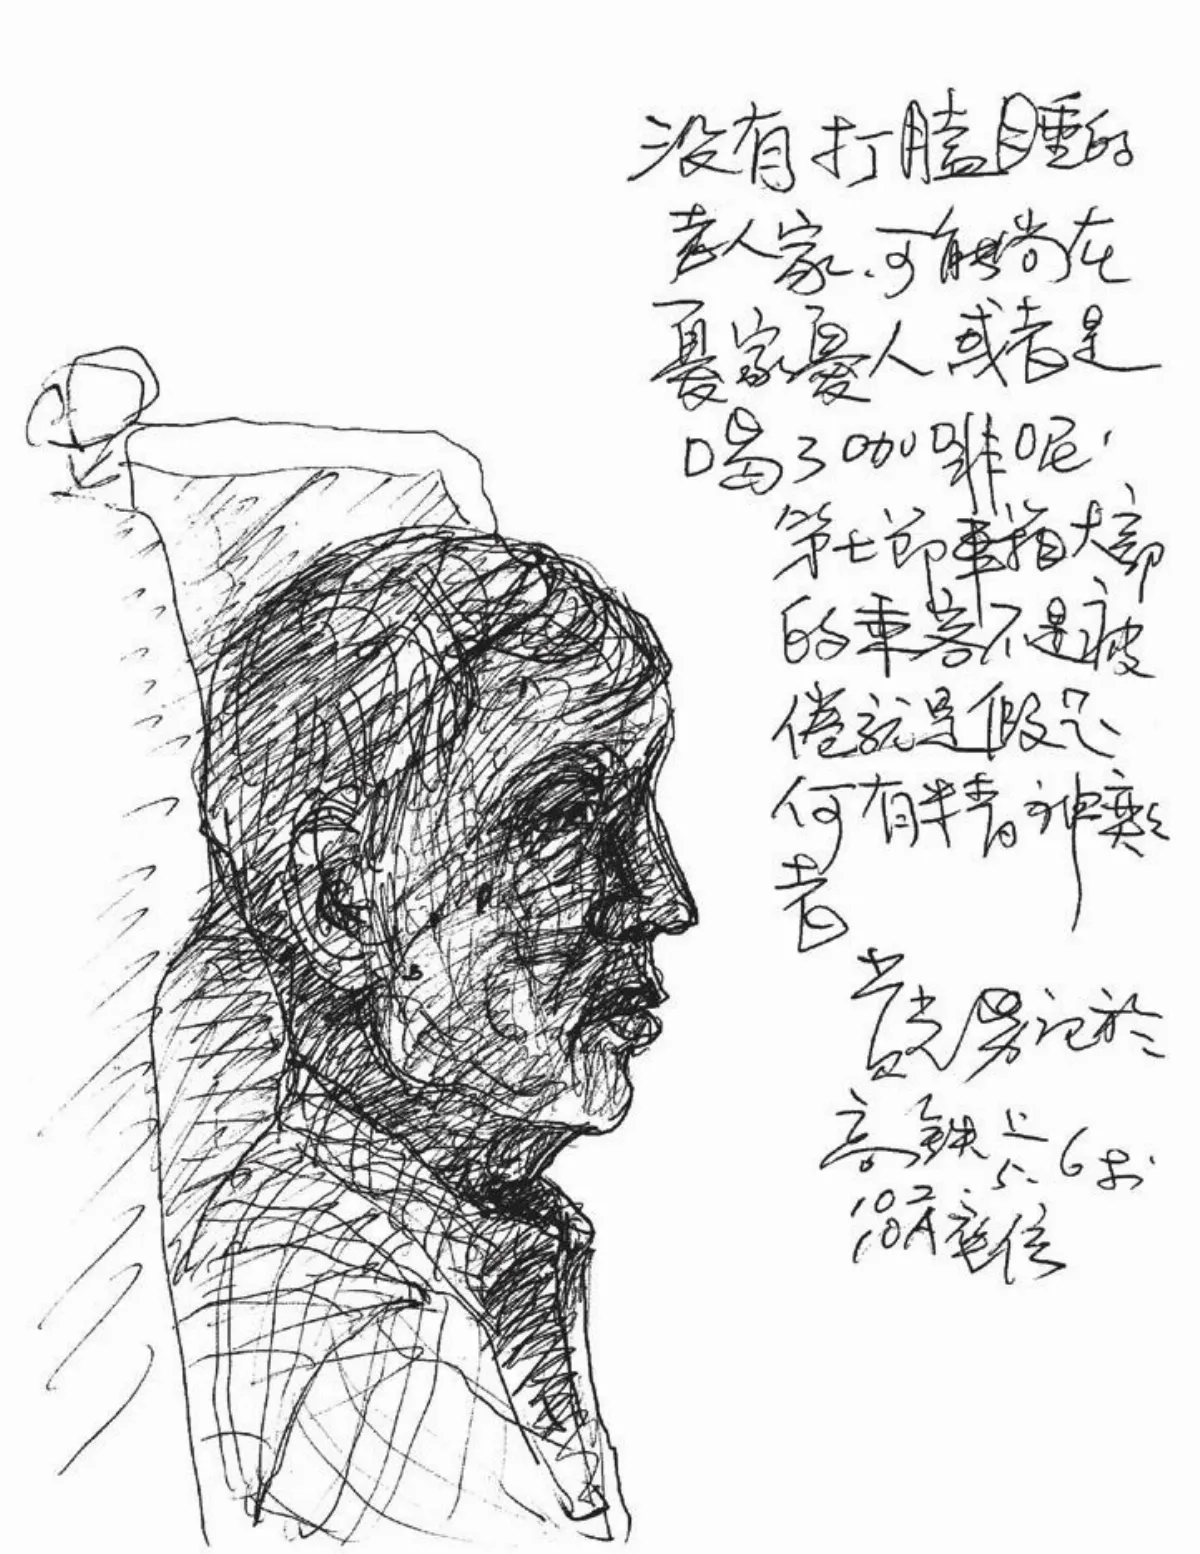 没有打瞌睡的
老人家、可能尚在
憂家憂人或者是
喝了咖啡呢.
第七節車箱大部
的乘客不是疲
倦就是假
何有半青神
者
男记於
高鐵上 6
10A座位